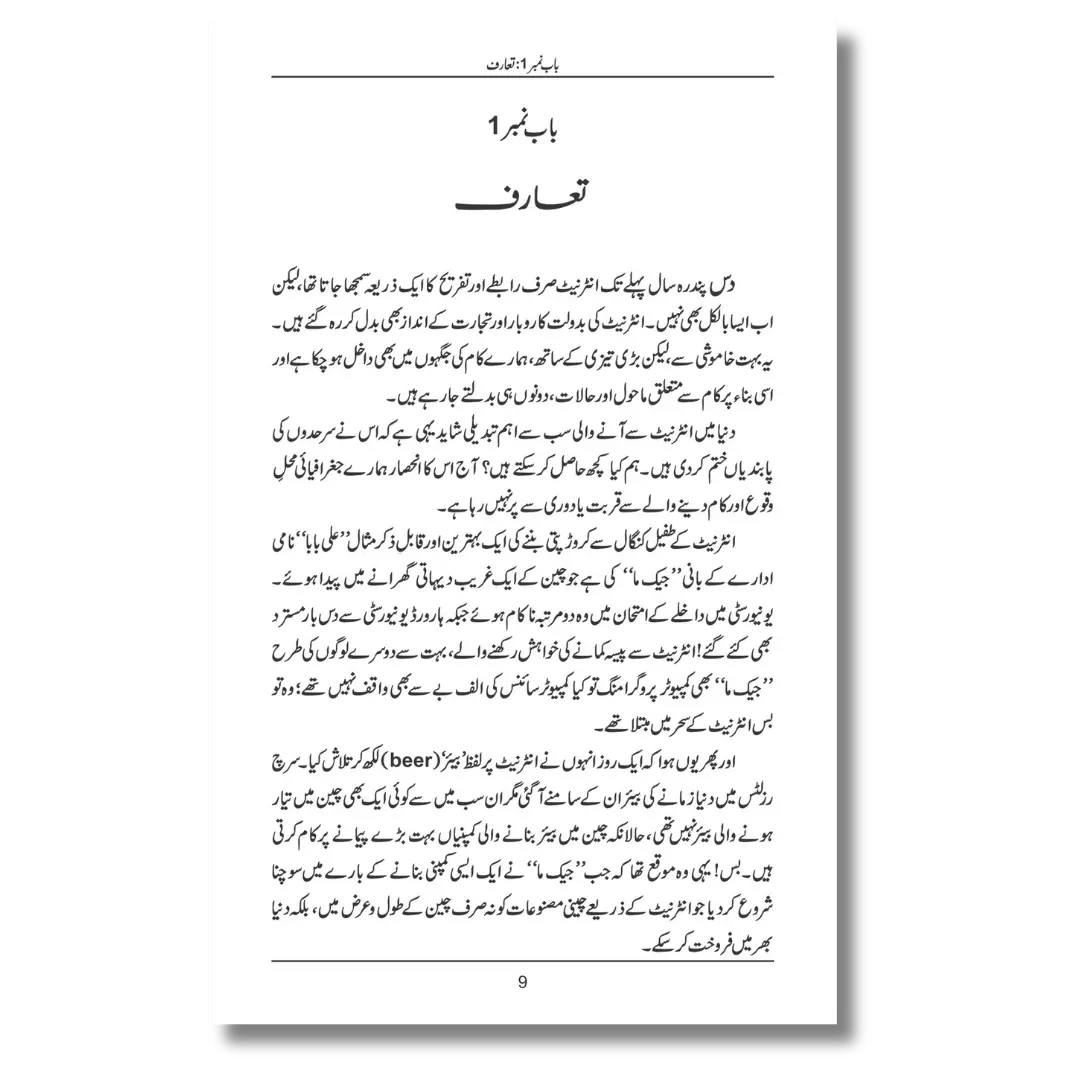 باب نمبر 1: تعارف
باب نمبر 1
تعارف
دس پندرہ سال پہلے تک انٹرنیٹ صرف رابطے اور تفریح کا ایک ذریعہ سمجھا جاتا تھا، لیکن
اب ایسا بالکل بھی نہیں۔ انٹرنیٹ کی بدولت کاروبار اور تجارت کے انداز بھی بدل کر رہ گئے ہیں۔
یہ بہت خاموشی سے، لیکن بڑی تیزی کے ساتھ، ہمارے کام کی جگہوں میں بھی داخل ہو چکا ہے اور
اسی بناء پر کام سے متعلق ماحول اور حالات، دونوں ہی بدلتے جا رہے ہیں۔
دنیا میں انٹرنیٹ سے آنے والی سب سے اہم تبدیلی شاید یہی ہے کہ اس نے سرحدوں کی
پابندیاں ختم کر دی ہیں۔ ہم کیا کچھ حاصل کر سکتے ہیں؟ آج اس کا انحصار ہمارے جغرافیائی محلِ
وقوع اور کام دینے والے سے قربت یا دوری سے پر نہیں رہا ہے۔
انٹرنیٹ کے طفیل کنگال سے کروڑ پتی بننے کی ایک بہترین اور قابلِ ذکر مثال ’’علی بابا‘‘ نامی
ادارے کے بانی ’’جیک ما‘‘ کی ہے جو چین کے ایک غریب دیہاتی گھرانے میں پیدا ہوئے۔
یونیورسٹی میں داخلے کے امتحان میں وہ دو مرتبہ ناکام ہوئے جبکہ ہارورڈ یونیورسٹی سے دس بار مسترد
بھی کئے گئے! انٹرنیٹ سے پیسہ کمانے کی خواہش رکھنے والے، بہت سے دوسرے لوگوں کی طرح
’’جیک ما‘‘ بھی کمپیوٹر پروگرامنگ تو کیا کمپیوٹر سائنس کی الف بے سے بھی واقف نہیں تھے؛ وہ تو
بس انٹرنیٹ کے سحر میں مبتلا تھے۔
اور پھر یوں ہوا کہ ایک روز انہوں نے انٹرنیٹ پر لفظ ’بیئر‘ (beer) لکھ کر تلاش کیا۔ سرچ
رزلٹس میں دنیا زمانے کی بیئر ان کے سامنے آ گئی مگر ان سب میں سے کوئی ایک بھی چین میں تیار
ہونے والی بیئر نہیں تھی، حالانکہ چین میں بیئر بنانے والی کمپنیاں بہت بڑے پیمانے پر کام کرتی
ہیں۔ بس! یہی وہ موقع تھا کہ جب ’’جیک ما‘‘ نے ایک ایسی کمپنی بنانے کے بارے میں سوچنا
شروع کر دیا جو انٹرنیٹ کے ذریعے چینی مصنوعات کو نہ صرف چین کے طول و عرض میں، بلکہ دنیا
بھر میں فروخت کر سکے۔
9